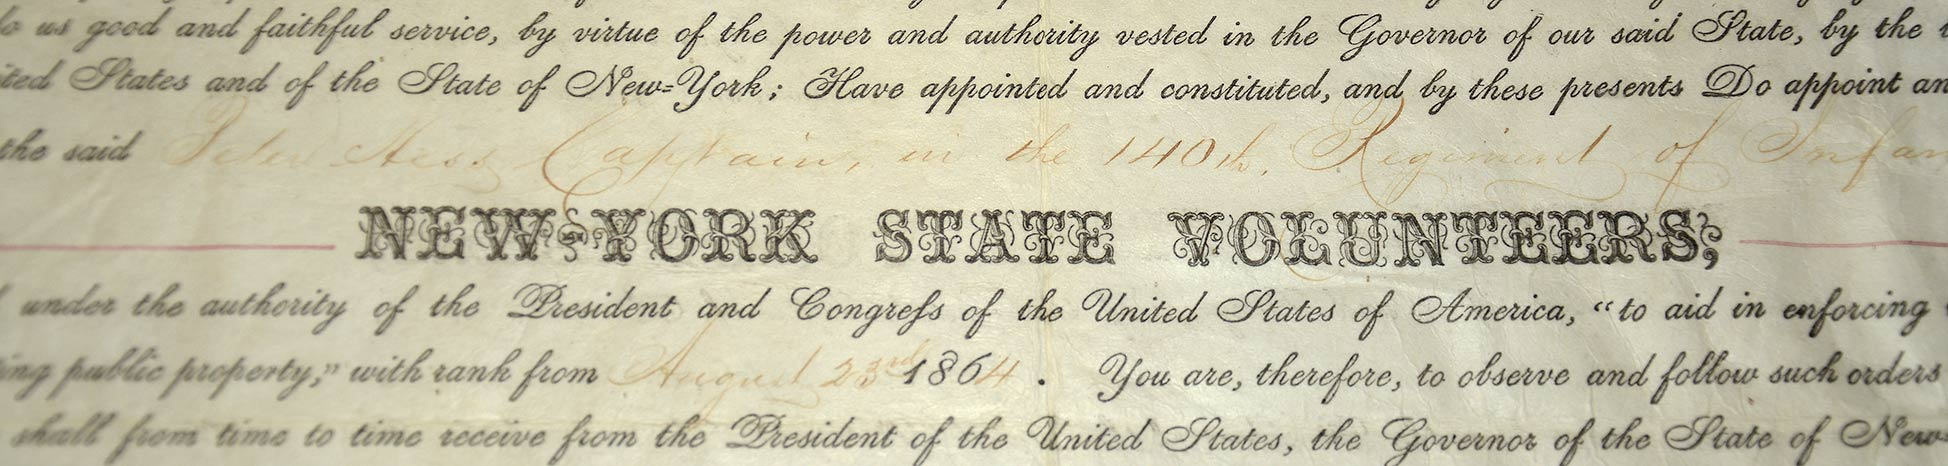 to us good and faithful service, by virtue of the power and authority vested in the Governor of our said State, by the
States and of the State of New=York; Have appointed and constituted, and by these presents Do appoint an
the said Peter Hess Captain, in the 140th. Regiment of Infan
NEW-YORK STATE VOLUNTEERS,
under the authority of the President and Congreſs of the United States of America, "to aid in enforcing
ing public property," with rank from August 23rd 1864. You are, therefore, to observe and follow such orders
shall from time to time receive from the President of the United States, the Governor of the State of New=